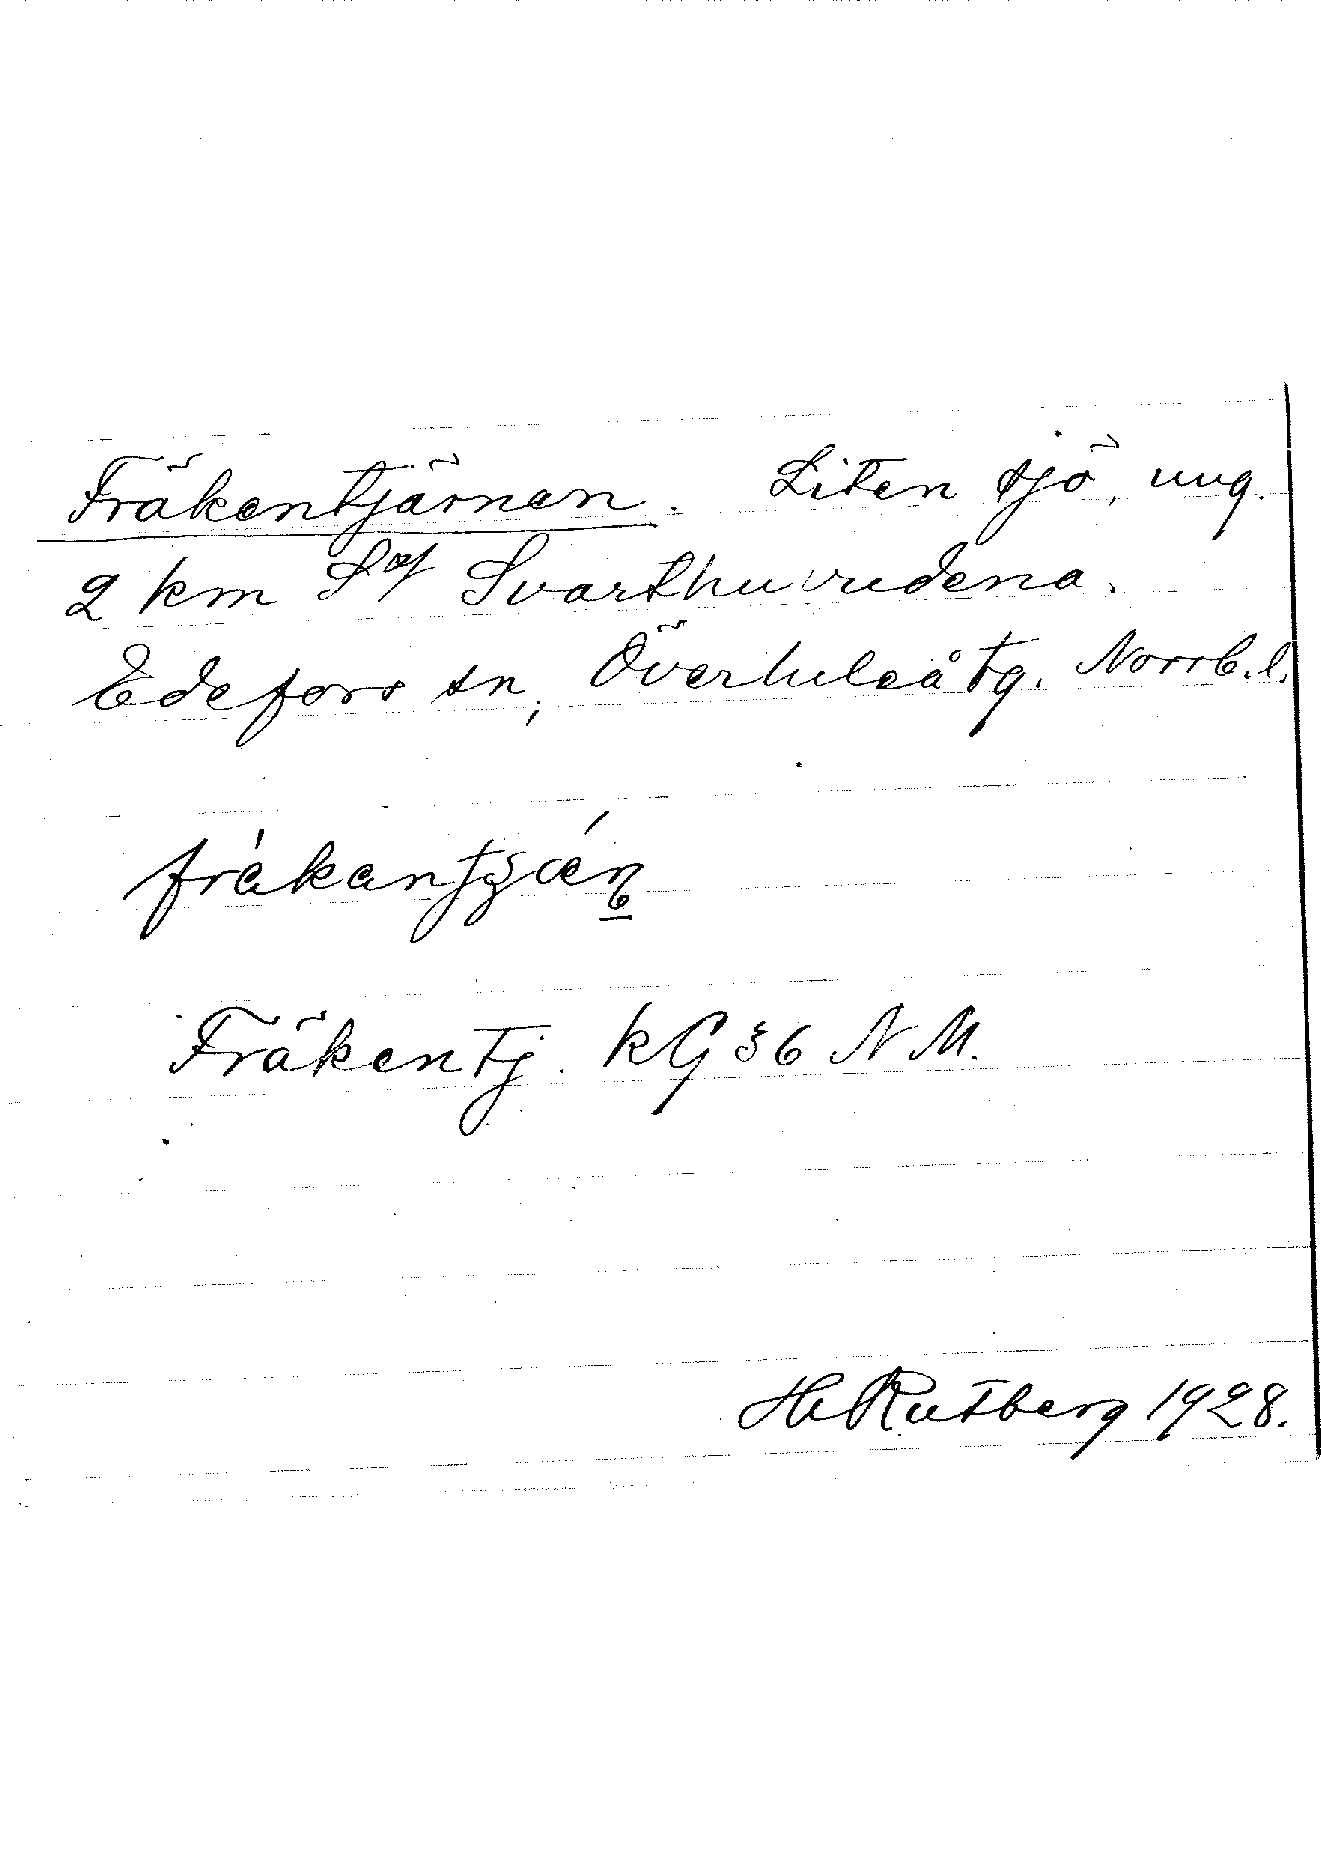 Fräkentjärnen. Liten sjö, ung.
2 km S of Svarthuvudena.
Edefors sn, Överluleå tg. Norrb. l.
Fräkentj. kG 36 N M.
H Rutberg 1928.